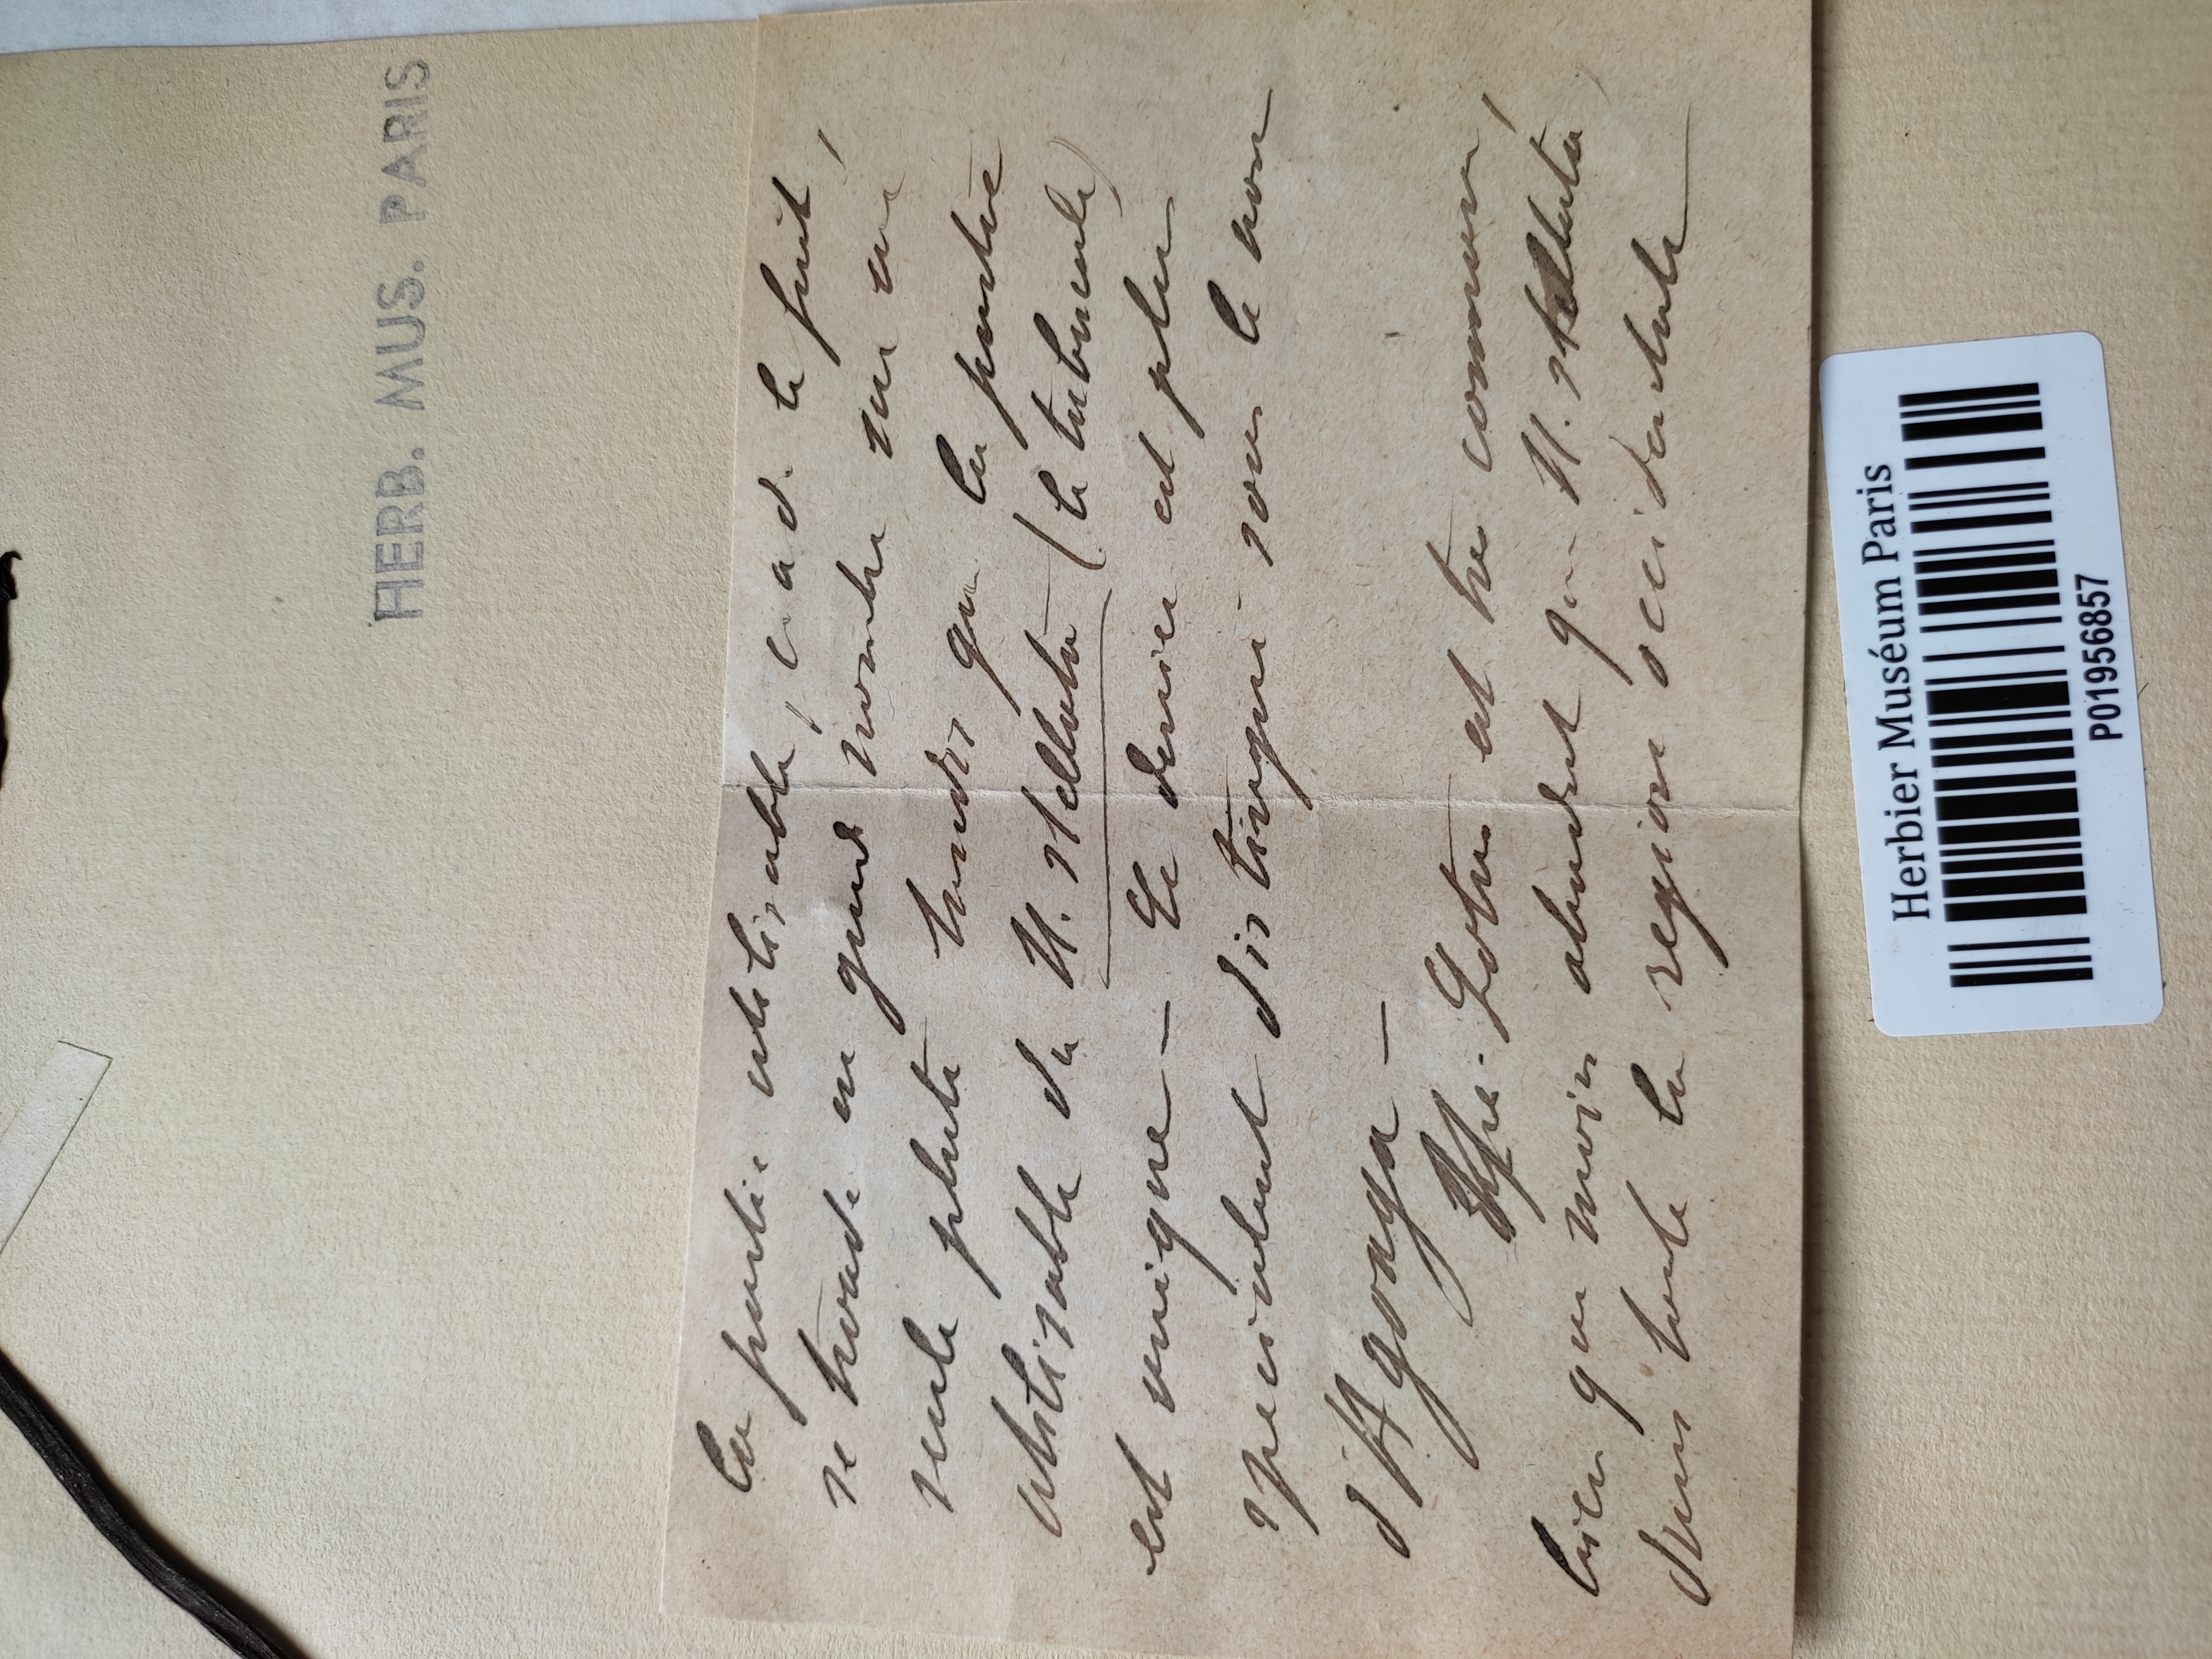 HERB. MUS. PARIS
La partie utilisable, c. a d. le fruit,
se trouve en grand nombre sur une
seule plante tandis que la partie
utilisable du N. stellata (le tubercule)
est unique — Ce dernier est plus
specialement distingué sous le nom
d'Agonga —
Nymphea Lotus est tres commun,
bien que moins abondant que N. stellata,
dans toute la region occidentale
Herbier Muséum Paris
P01956857